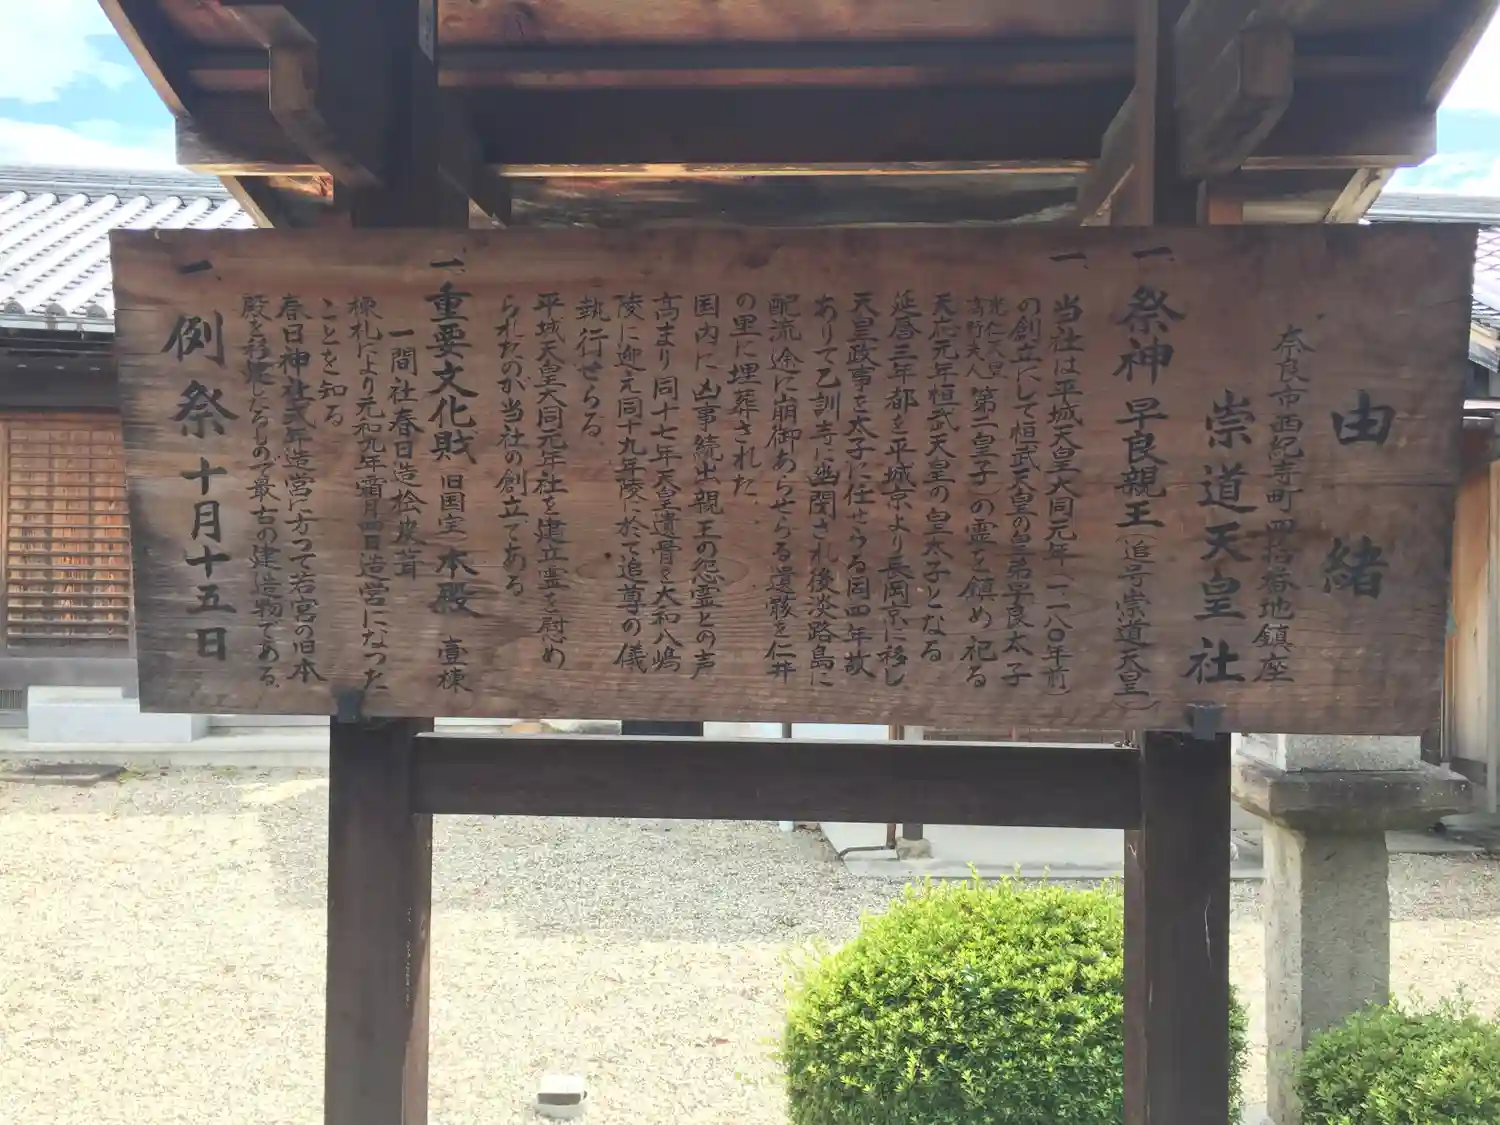 由緒
奈良市西紀寺町四拾番地鎮座
崇道天皇社
一、祭神 早良親王(追号崇道天皇)
一、当社は平城天皇大同元年(一一八〇年前)
の創立にして桓武天皇の皇弟早良太子
(光仁天皇高野夫人第二皇子)の霊を鎮め祀る
天応元年桓武天皇の皇太子となる
延暦三年都を平城京より長岡京に移し
天皇政事を太子に任せらる因四年故
ありて乙訓寺に幽閉され後淡路島に
配流途に崩御あらせらる遺骸を仁井
の里に埋葬された
国内に凶事続出親王の怨霊との声
高まり同十七年天皇遺骨を大和八嶋
陵に迎え同十九年陵に於て追尊の儀
執行せらる
平城天皇大同元年社を建立霊を慰め
られたのが当社の創立である
一、重要文化財(旧国宝)本殿 壹棟
一間社春日造桧皮葺
棟札により元和九年霜月四日造営になった
ことを知る
春日神社式年造宮に方って若宮の旧本
殿を移築したるもので最古の建造物である
一、例祭 十月十五日